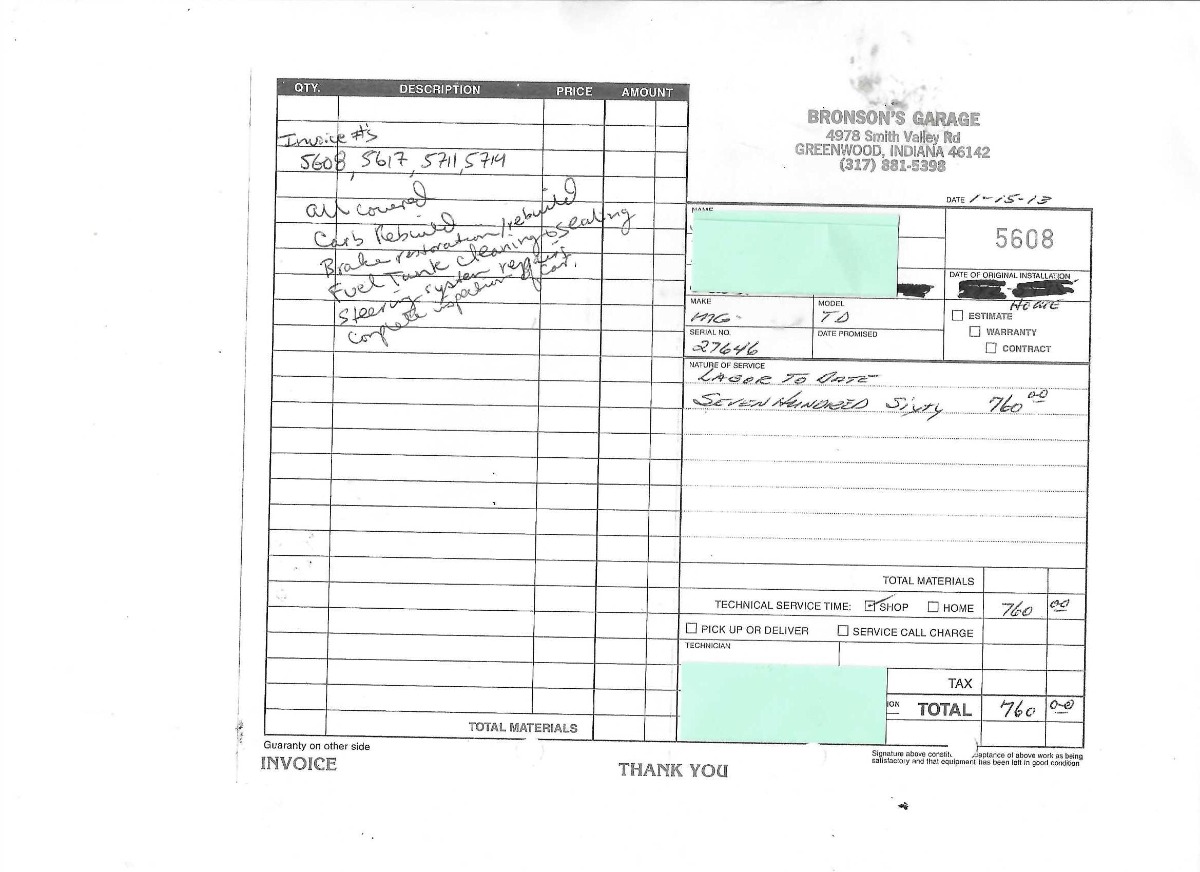 QTY. DESCRIPTION PRICE AMOUNT
Invoice #'s
5608, 5617, 5711, 5714
All covered
Carb Rebuild
Brake restoration/rebuild
Fuel Tank Cleaning & Sealing
Steering system repairs
Complete inspection of car.
TOTAL MATERIALS
Guaranty on other side
INVOICE
THANK YOU
BRONSON'S GARAGE
4978 Smith Valley Rd
GREENWOOD, INDIANA 46142
(317) 881-5398
DATE 1-15-13
NAME
5608
DATE OF ORIGINAL INSTALLATION
HOME
MAKE
MG
MODEL
TD
ESTIMATE
WARRANTY
CONTRACT
SERIAL NO.
27646
DATE PROMISED
NATURE OF SERVICE
LABOR TO DATE
SEVEN HUNDRED Sixty 760 00
TOTAL MATERIALS
TECHNICAL SERVICE TIME: SHOP HOME 760 00
PICK UP OR DELIVER SERVICE CALL CHARGE
TECHNICIAN
TAX
TOTAL 760 00
Signature above acceptance of above work as being
satisfactory and that equipment has been left in good condition